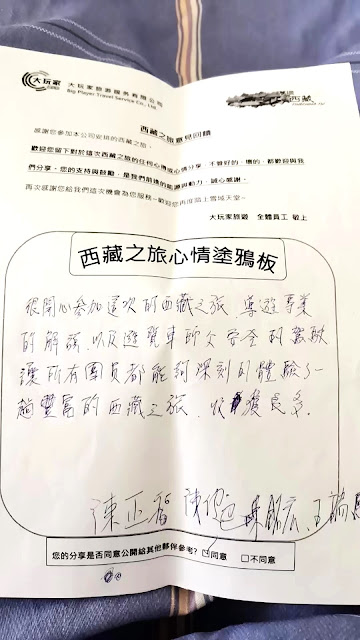 大玩家 大玩家旅遊服務有限公司
Big Player Travel Service Co., Ltd.
西藏
西藏之旅意見回饋
感謝您參加本公司安排的西藏之旅，
歡迎您留下對於這次西藏之旅的任何心得或心情分享，不管好的、壞的，都歡迎與我
們分享，您的支持與鼓勵，是我們前進的能源與動力，誠心感謝。
再次感謝您給我們這次機會為您服務~歡迎您再度踏上雪域天堂~
大玩家旅遊 全體員工 敬上
西藏之旅心情塗鴉板
很開心參加這次的西藏之旅，導遊專業
的解說，以及遊覽車師父安全的駕駛
讓所有團員都能夠深刻的體驗了一
趟豐富的西藏之旅，收獲良多．
陳正智
您的分享是否同意公開給其他夥伴參考? 同意 不同意